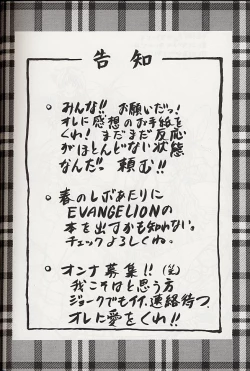 告知
・みんな!! お願いだっ!
オレに感想のお手紙を
くれ! まだまだ反応
がほとんどない状態
なんだ!! 頼む!!
・春のレボあたりに
EVANGELIONの
本を出すかも知れない。
チェックよろしくね。
・オンナ募集!! (笑)
我こそはと思う方
ジョークでもイイ、連絡待つ、
オレに愛をくれ!!